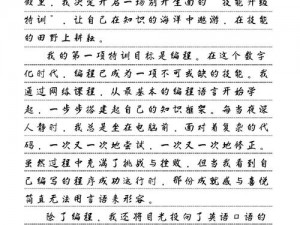 假里，我决定开启一场别开生面的“技能升级
特训”，让自己在知识的海洋中遨游，在技能
的田野上耕耘。
我的第一项特训目标是编程。在这个数字
化时代，编程已成为一项不可或缺的技能。我
通过网络课程，从最基本的编程语言开始学
起，一步步搭建起自己的知识框架。每当夜深
人静时，我总是坐在电脑前，面对着复杂的代
码，一次又一次地尝试，一次又一次地修正。
虽然过程中充满了挑战与挫败，但当我看到自
己编写的程序成功运行时，那份成就感与喜悦
简直无法用言语来形容。
除了编程，我还将目光投向了英语口语的